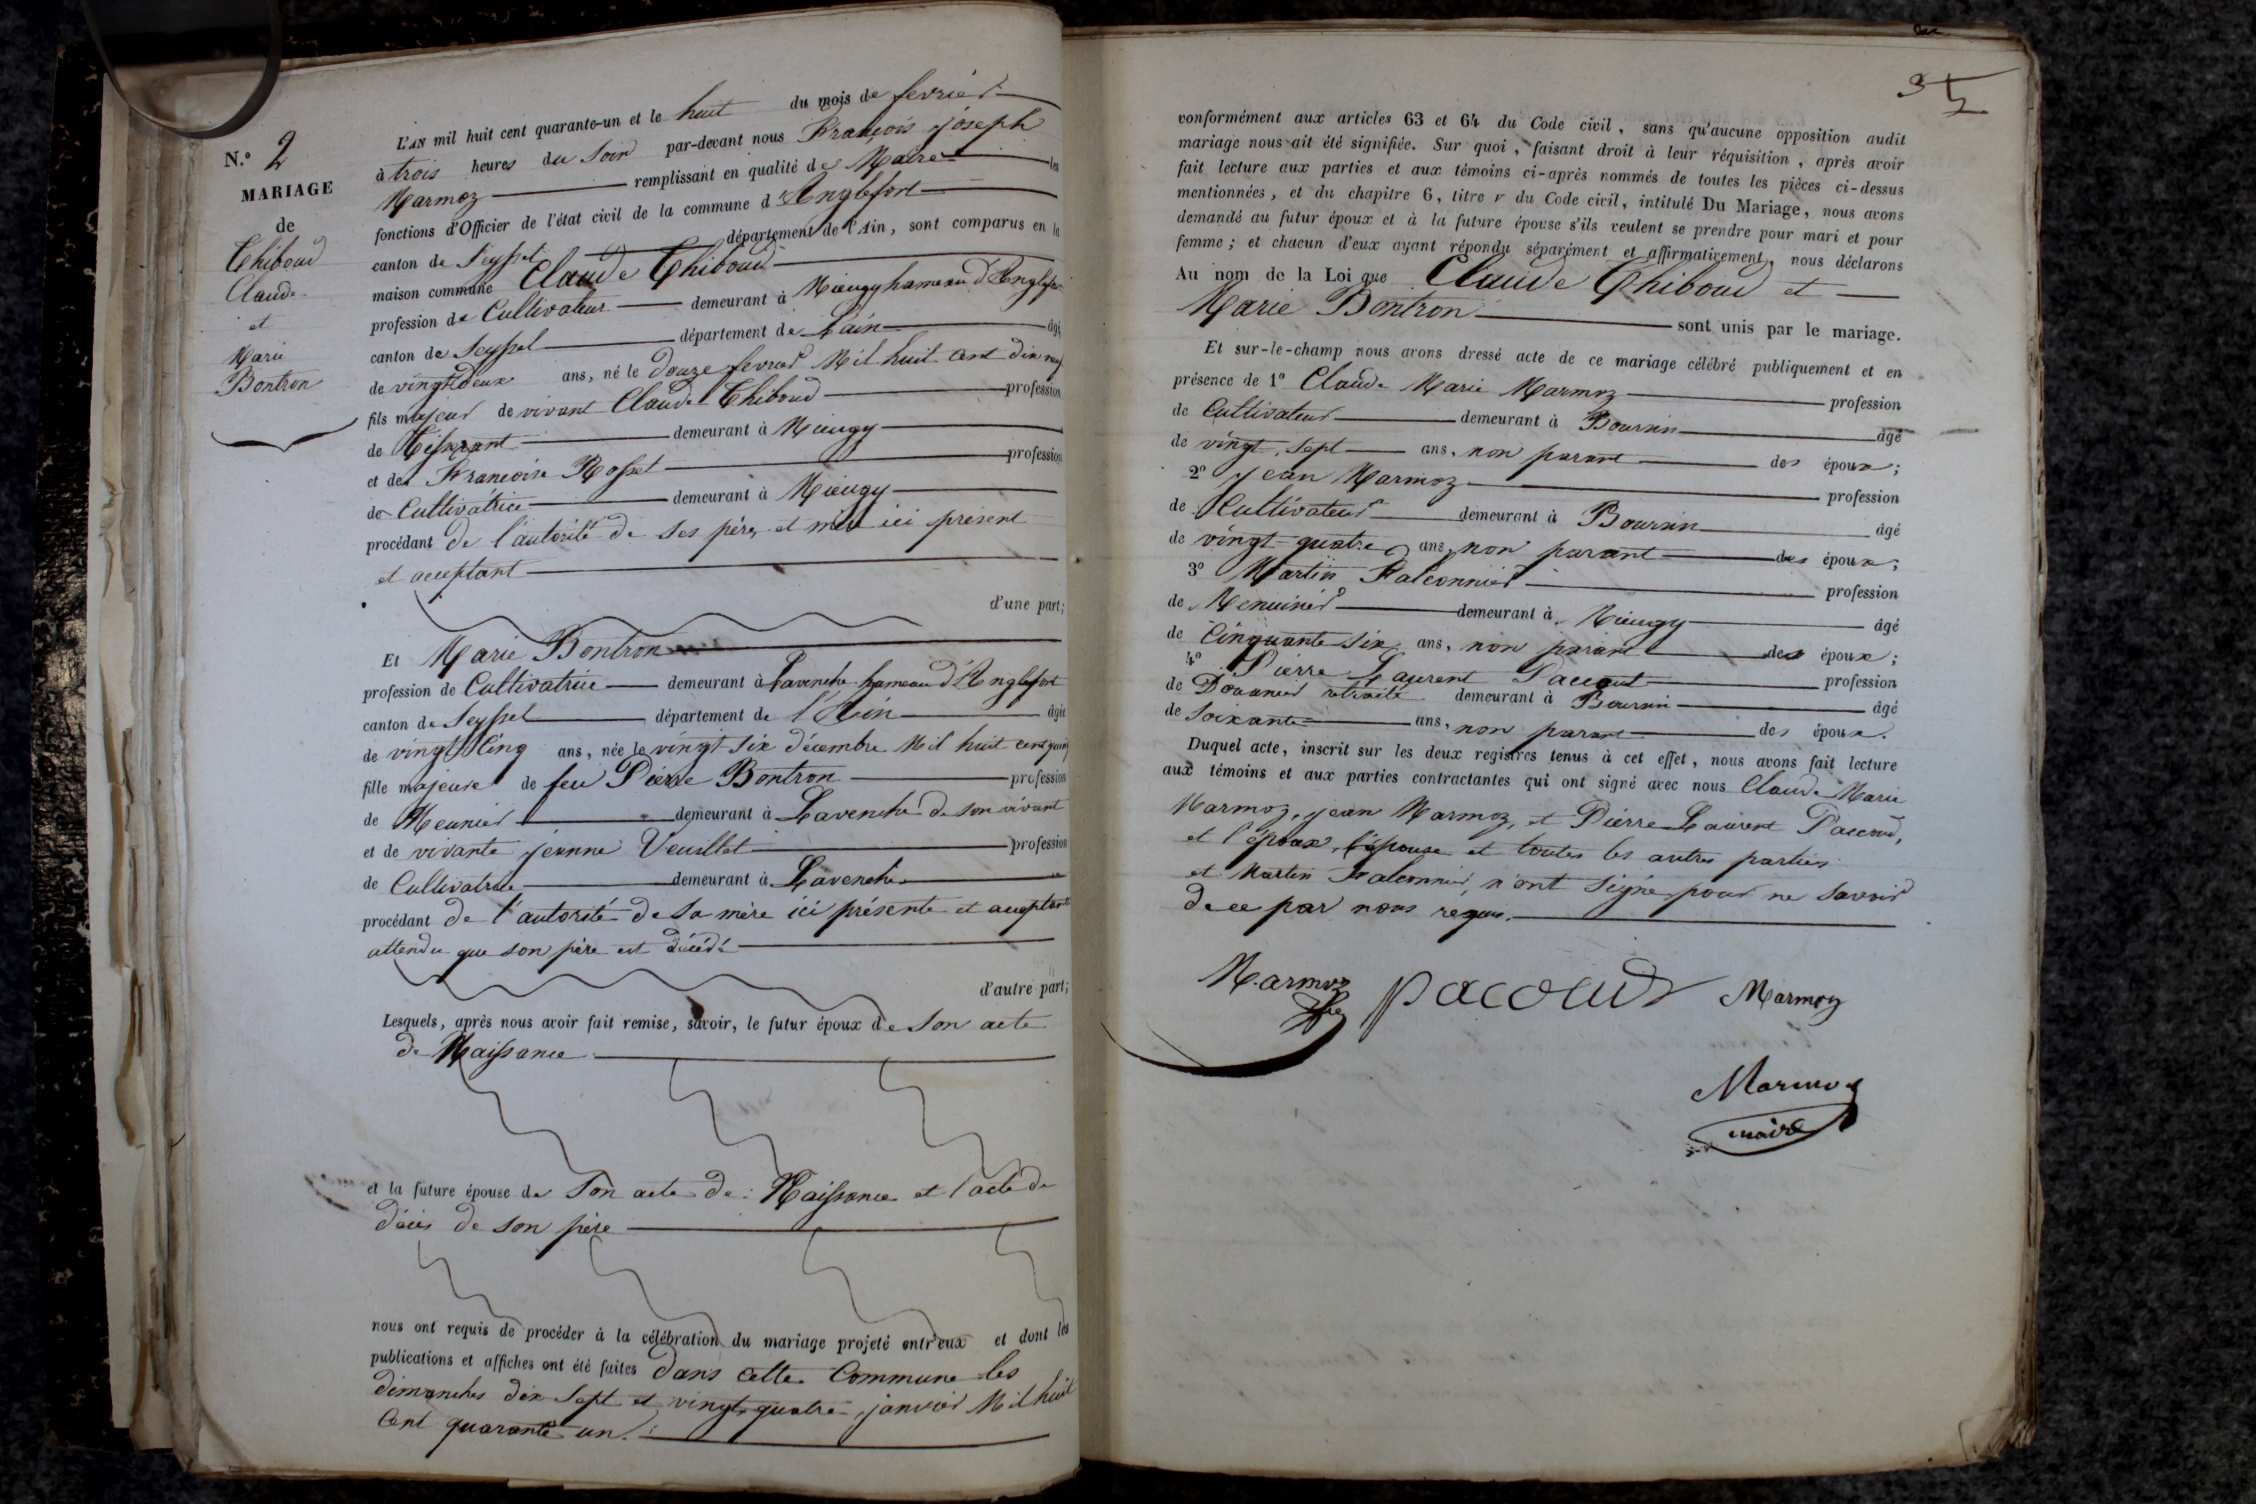 N.º 2
MARIAGE
de
Thiboud
Claude
et
Marie
Bontron
L'AN mil huit cent quarante-un et le huit du mois de fevrier
à trois heures du soir par-devant nous François joseph
Marmoz remplissant en qualité de Maire les
fonctions d'Officier de l'état civil de la commune d'Anglefort
canton de Seyssel département de l'Ain, sont comparus en la
maison commune Claude Thiboud
profession de Cultivateur demeurant à Mieugy hameau d'Anglefort
canton de Seyssel département de Lain âgé
de vingt deux ans, né le Douze fevrier Mil huit Cent dix neuf
fils majeur de vivant Claude Thiboud profession
de Tisserant demeurant à Mieugy
et de Francoise Rosset profession
de Cultivatrice demeurant à Mieugy
procédant de l'autorité de ses père et mère ici présent
et acceptant
d'une part;
Et Marie Bontron
profession de Cultivatrice demeurant à Lavenche hameau d'Anglefort
canton de Seyssel département de l'Ain âgée
de vingt Cinq ans, née le vingt six décembre Mil huit cent quinze
fille majeure de feu Pierre Bontron profession
de Meunier demeurant à Lavenche de son vivant
et de vivante jeanne Veuillet profession
de Cultivatrice demeurant à Lavenche
procédant de l'autorité de sa mère ici présente et acceptante
attendu que son père est décédé
d'autre part;
Lesquels, après nous avoir fait remise, savoir, le futur époux de son acte
de Naissance
et la future épouse de Son acte de Naissance et l'acte de
décès de son père
nous ont requis de procéder à la célébration du mariage projeté entr'eux et dont les
publications et affiches ont été faites dans cette Commune les
dimanches dix Sept et vingt quatre janvier Mil huit
Cent quarante un.
conformément aux articles 63 et 64 du Code civil, sans qu'aucune opposition audit
mariage nous ait été signifiée. Sur quoi, faisant droit à leur réquisition, après avoir
fait lecture aux parties et aux témoins ci-après nommés de toutes les pièces ci-dessus
mentionnées, et du chapitre 6, titre v du Code civil, intitulé Du Mariage, nous avons
demandé au futur époux et à la future épouse s'ils veulent se prendre pour mari et pour
femme; et chacun d'eux ayant répondu séparément et affirmativement, nous déclarons
Au nom de la Loi que Claude Thiboud et
Marie Bontron sont unis par le mariage.
Et sur-le-champ nous avons dressé acte de ce mariage célébré publiquement et en
présence de 1º Claude Marie Marmoz profession
de Cultivateur demeurant à Boursin âgé
de vingt sept ans, non parant des époux;
2º jean Marmoz profession
de Cultivateur demeurant à Boursin âgé
de vingt quatre ans, non parant des époux;
3º Martin Falconnier profession
de Menuisier demeurant à Mieugy âgé
de Cinquante six ans, non parant des époux;
4º Pierre Laurent Pacoud profession
de Douanier retraité demeurant à Boursin âgé
de Soixante ans, non parant des époux.
Duquel acte, inscrit sur les deux registres tenus à cet effet, nous avons fait lecture
aux témoins et aux parties contractantes qui ont signé avec nous Claude Marie
Marmoz, jean Marmoz, et Pierre Laurent Pacoud,
et l'époux, l'épouse et toutes les autres parties
et Martin Falconnier, n'ont signé pour ne savoir
de ce par nous requis.
Marmoz pacoud Marmoz
Marmoz
maire